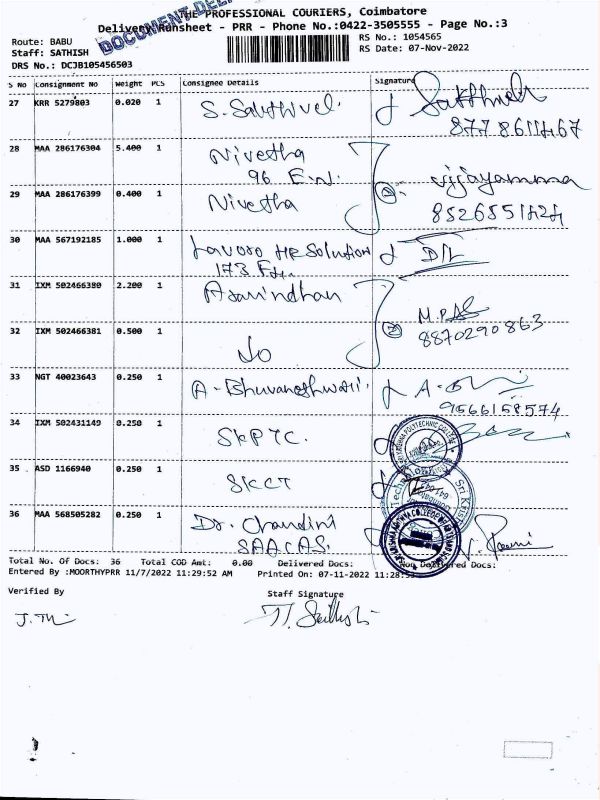 THE PROFESSIONAL COURIERS, Coimbatore
Delivery Runsheet - PRR - Phone No.:0422-3505555 - Page No.:3
Route: BABU
RS No.: 1054565
Staff: SATHISH
RS Date: 07-Nov-2022
DRS No.: DCJB105456503
S No Consignment No Weight PCS Consignee Details Signature
27 KRR 5279803 0.020 1 S. Sakthivel.
8778611467
28 MAA 286176304 5.400 1 Nivetha
96 F.N. Vijayamma
29 MAA 286176399 0.400 1 Nivetha 8526551424
30 MAA 567192185 1.000 1 Lavoro HR Solution
173 F4.
31 IXM 502466380 2.200 1 Aravindhan
8870290863
32 IXM 502466381 0.500 1
33 NGT 40023643 0.250 1 A. Bhuvaneshwari.
9566158574
34 IXM 502431149 0.250 1 SKPTC.
35 ASD 1166940 0.250 1 SKCT
36 MAA 568505282 0.250 1 Dr. Chandini
SAACAS.
Total No. Of Docs: 36 Total COD Amt: 0.00 Delivered Docs: Non Delivered Docs:
Entered By :MOORTHYPRR 11/7/2022 11:29:52 AM Printed On: 07-11-2022 11:28:5
Verified By Staff Signature